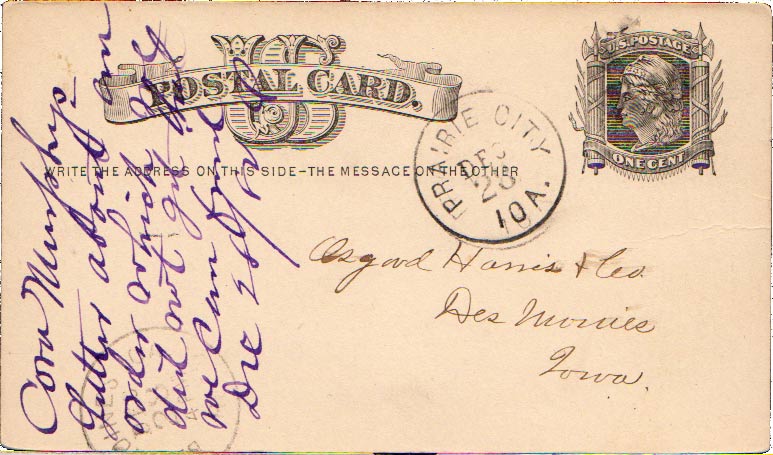 U.S. POSTAGE
ONE CENT
US
POSTAL CARD.
WRITE THE ADDRESS ON THIS SIDE-THE MESSAGE ON THE OTHER
PRAIRIE CITY
DEC
IOA.
Osgood Harris & Co.
Des Moines
Iowa.
Cora Murphy
letter about an
order which
did not get
we can find
Dec